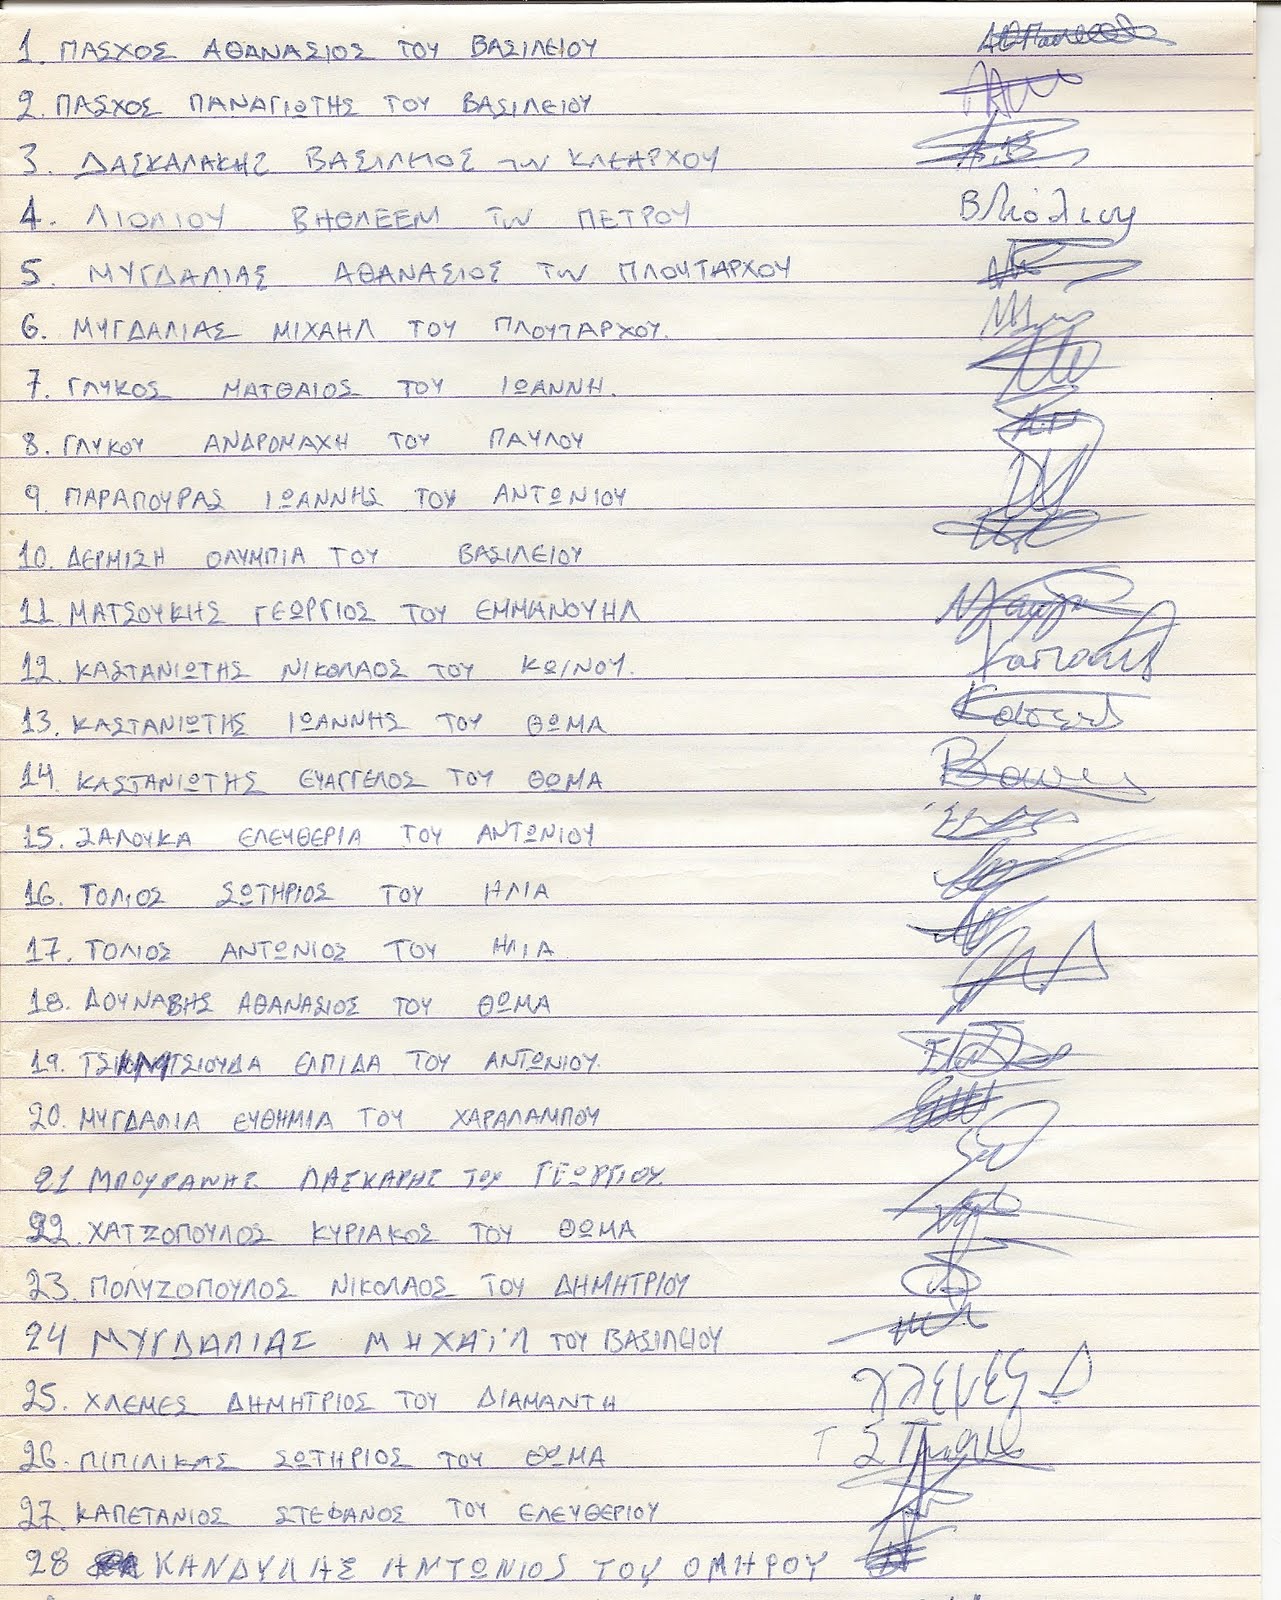 1. ΠΑΣΧΟΣ ΑΘΑΝΑΣΙΟΣ ΤΟΥ ΒΑΣΙΛΕΙΟΥ
2. ΠΑΣΧΟΣ ΠΑΝΑΓΙΩΤΗΣ ΤΟΥ ΒΑΣΙΛΕΙΟΥ
3. ΔΑΣΚΑΛΑΚΗΣ ΒΑΣΙΛΕΙΟΣ του ΚΛΕΑΡΧΟΥ
4. ΛΙΟΛΙΟΥ ΒΗΘΛΕΕΜ του ΠΕΤΡΟΥ
5. ΜΥΓΔΑΛΙΑΣ ΑΘΑΝΑΣΙΟΣ του ΠΛΟΥΤΑΡΧΟΥ
6. ΜΥΓΔΑΛΙΑΣ ΜΙΧΑΗΛ ΤΟΥ ΠΛΟΥΤΑΡΧΟΥ.
7. ΓΛΥΚΟΣ ΜΑΤΘΑΙΟΣ ΤΟΥ ΙΩΑΝΝΗ.
8. ΓΛΥΚΟΥ ΑΝΔΡΟΜΑΧΗ ΤΟΥ ΠΑΥΛΟΥ
9. ΠΑΡΑΠΟΥΡΑΣ ΙΩΑΝΝΗΣ ΤΟΥ ΑΝΤΩΝΙΟΥ
10. ΔΕΡΜΙΣΗ ΟΛΥΜΠΙΑ ΤΟΥ ΒΑΣΙΛΕΙΟΥ
11. ΜΑΤΣΟΥΚΗΣ ΓΕΩΡΓΙΟΣ ΤΟΥ ΕΜΜΑΝΟΥΗΛ
12. ΚΑΣΤΑΝΙΩΤΗΣ ΝΙΚΟΛΑΟΣ ΤΟΥ ΚΩ/ΝΟΥ.
13. ΚΑΣΤΑΝΙΩΤΗΣ ΙΩΑΝΝΗΣ ΤΟΥ ΘΩΜΑ
14. ΚΑΣΤΑΝΙΩΤΗΣ ΕΥΑΓΓΕΛΟΣ ΤΟΥ ΘΩΜΑ
15. ΖΑΛΟΥΚΑ ΕΛΕΥΘΕΡΙΑ ΤΟΥ ΑΝΤΩΝΙΟΥ
16. ΤΟΛΙΟΣ ΣΩΤΗΡΙΟΣ ΤΟΥ ΗΛΙΑ
17. ΤΟΛΙΟΣ ΑΝΤΩΝΙΟΣ ΤΟΥ ΗΛΙΑ
18. ΔΟΥΝΑΒΗΣ ΑΘΑΝΑΣΙΟΣ ΤΟΥ ΘΩΜΑ
19. ΕΛΠΙΔΑ ΤΟΥ ΑΝΤΩΝΙΟΥ.
20. ΜΥΓΔΑΛΙΑ ΕΥΘΗΜΙΑ ΤΟΥ ΧΑΡΑΛΑΜΠΟΥ
21 ΜΠΟΥΡΑΝΗΣ ΛΑΣΚΑΡΗΣ ΤΟΥ ΓΕΩΡΓΙΟΥ
22. ΧΑΤΖΟΠΟΥΛΟΣ ΚΥΡΙΑΚΟΣ ΤΟΥ ΘΩΜΑ
23. ΠΟΛΥΖΟΠΟΥΛΟΣ ΝΙΚΟΛΑΟΣ ΤΟΥ ΔΗΜΗΤΡΙΟΥ
24 ΜΥΓΔΑΛΙΑΣ ΜΗΧΑΪΛ ΤΟΥ ΒΑΣΙΛΕΙΟΥ
25. ΧΛΕΜΕΣ ΔΗΜΗΤΡΙΟΣ ΤΟΥ ΔΙΑΜΑΝΤΗ χλεμες Δ
26. ΠΙΠΙΛΙΚΑΣ ΣΩΤΗΡΙΟΣ ΤΟΥ ΘΩΜΑ
27. ΚΑΠΕΤΑΝΙΟΣ ΣΤΕΦΑΝΟΣ ΤΟΥ ΕΛΕΥΘΕΡΙΟΥ
28 ΚΑΝΔΥΛΗΣ ΑΝΤΩΝΙΟΣ ΤΟΥ ΟΜΗΡΟΥ